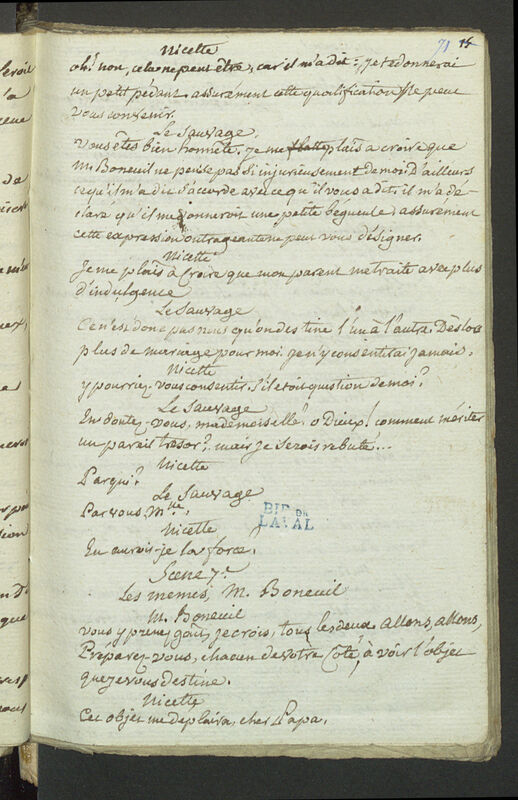 Nicette
71 15
oh! non, cela ne peut être, car il m'a dit: je te donnerai
un petit pédant. assurament cette qualification ne peut
vous convenir.
Le Sauvage.
Vous êtes bien honnête. je me plais a croire que
M. Boneuil ne pense pas si injurieusement de moi. D'ailleurs
ce qu'il m'a dit s'accorde avec ce qu'il vous a dit. il m'a dé-
claré qu'il me donneroit une petite bégueule. assurément
cette expression outrageante ne peut vous désigner.
Nicette
Je me plais à Croire que mon parent me traite avec plus
d'indulgence
Le Sauvage
Ce n'est donc pas nous qu'on destine l'un à l'autre. Dès lors
plus de mariage pour moi. je n'y consentirai jamais.
Nicette
y pourriez-vous consentir, s'il étoit question de moi?
Le Sauvage
En doutez-vous, mademoiselle? o Dieux! comment mériter
un pareil trésor? mais je serois rebuté...
Nicette
Par qui?
Le Sauvage
Par vous, Mlle.
Nicette
En aurois-je la force.
BIB DE
LAVAL
Scene 7.e
Les memes, M. Boneuil
M. Boneuil
vous y prenez goût, je crois, tous les deux. allons, allons,
Préparez-vous, chacun de votre Côté, à voir l'objet
que je vous destine.
Nicette
Cet objet me deplaira, cher Papa.